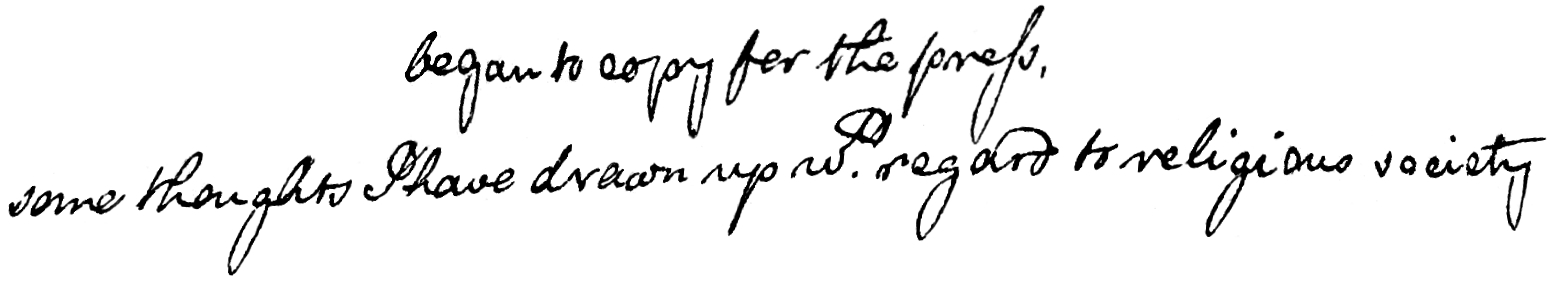 began to copy for the preſs,
some thoughts I have drawn up wth. regard to religious society